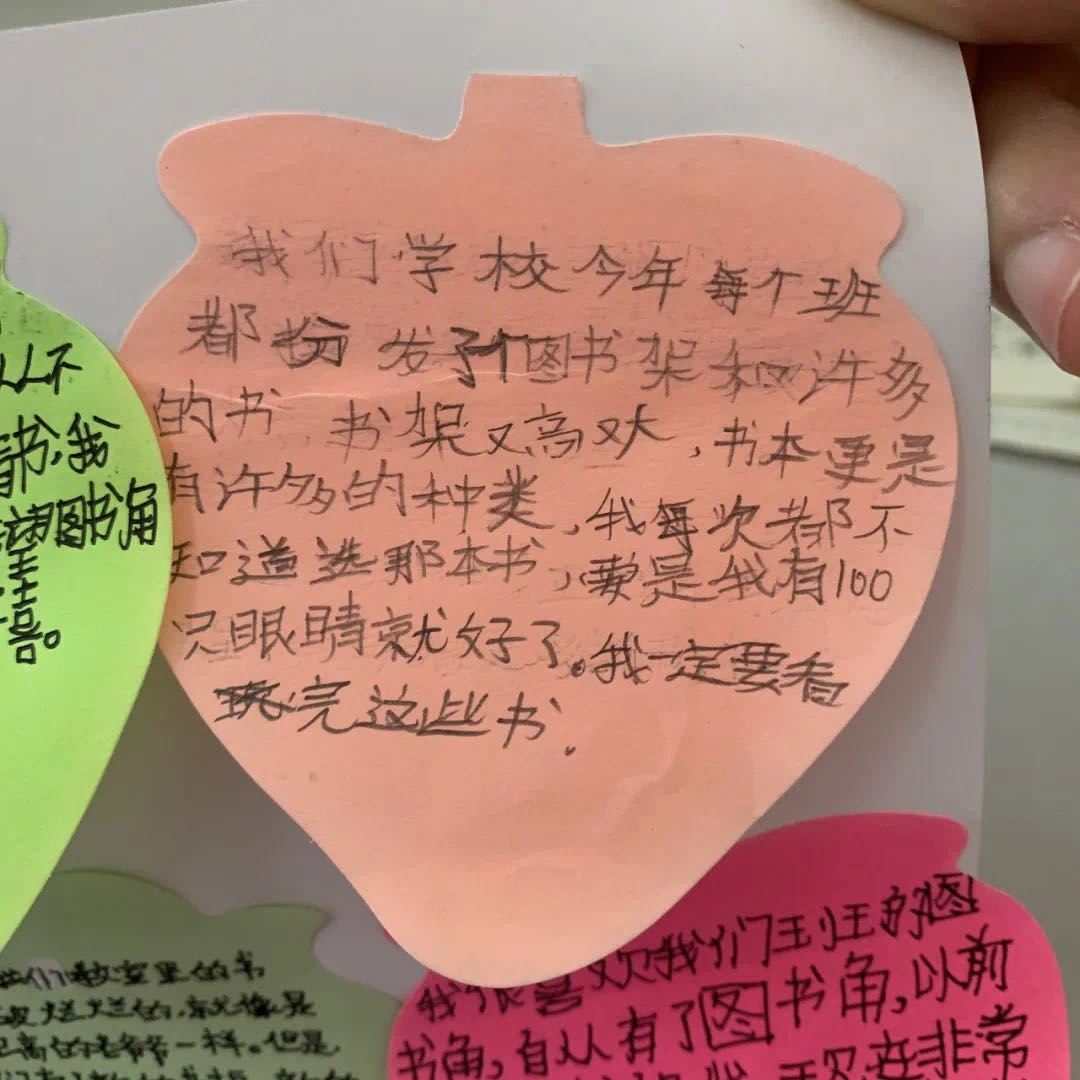 我们学校今年每个班
都份发了个图书架和许多
的书,书架又高又大,书本更是
有许多的种类,我每次都不
知道选那本书,要是我有100
只眼睛就好了。我一定要看
完这些书.
以不
书,我
图书角
喜。
我们教室里的书
烂烂的,就像是
高的老爷爷一样。但是
我很喜欢我们班的图
书角,自从有了图书角,以前
非常